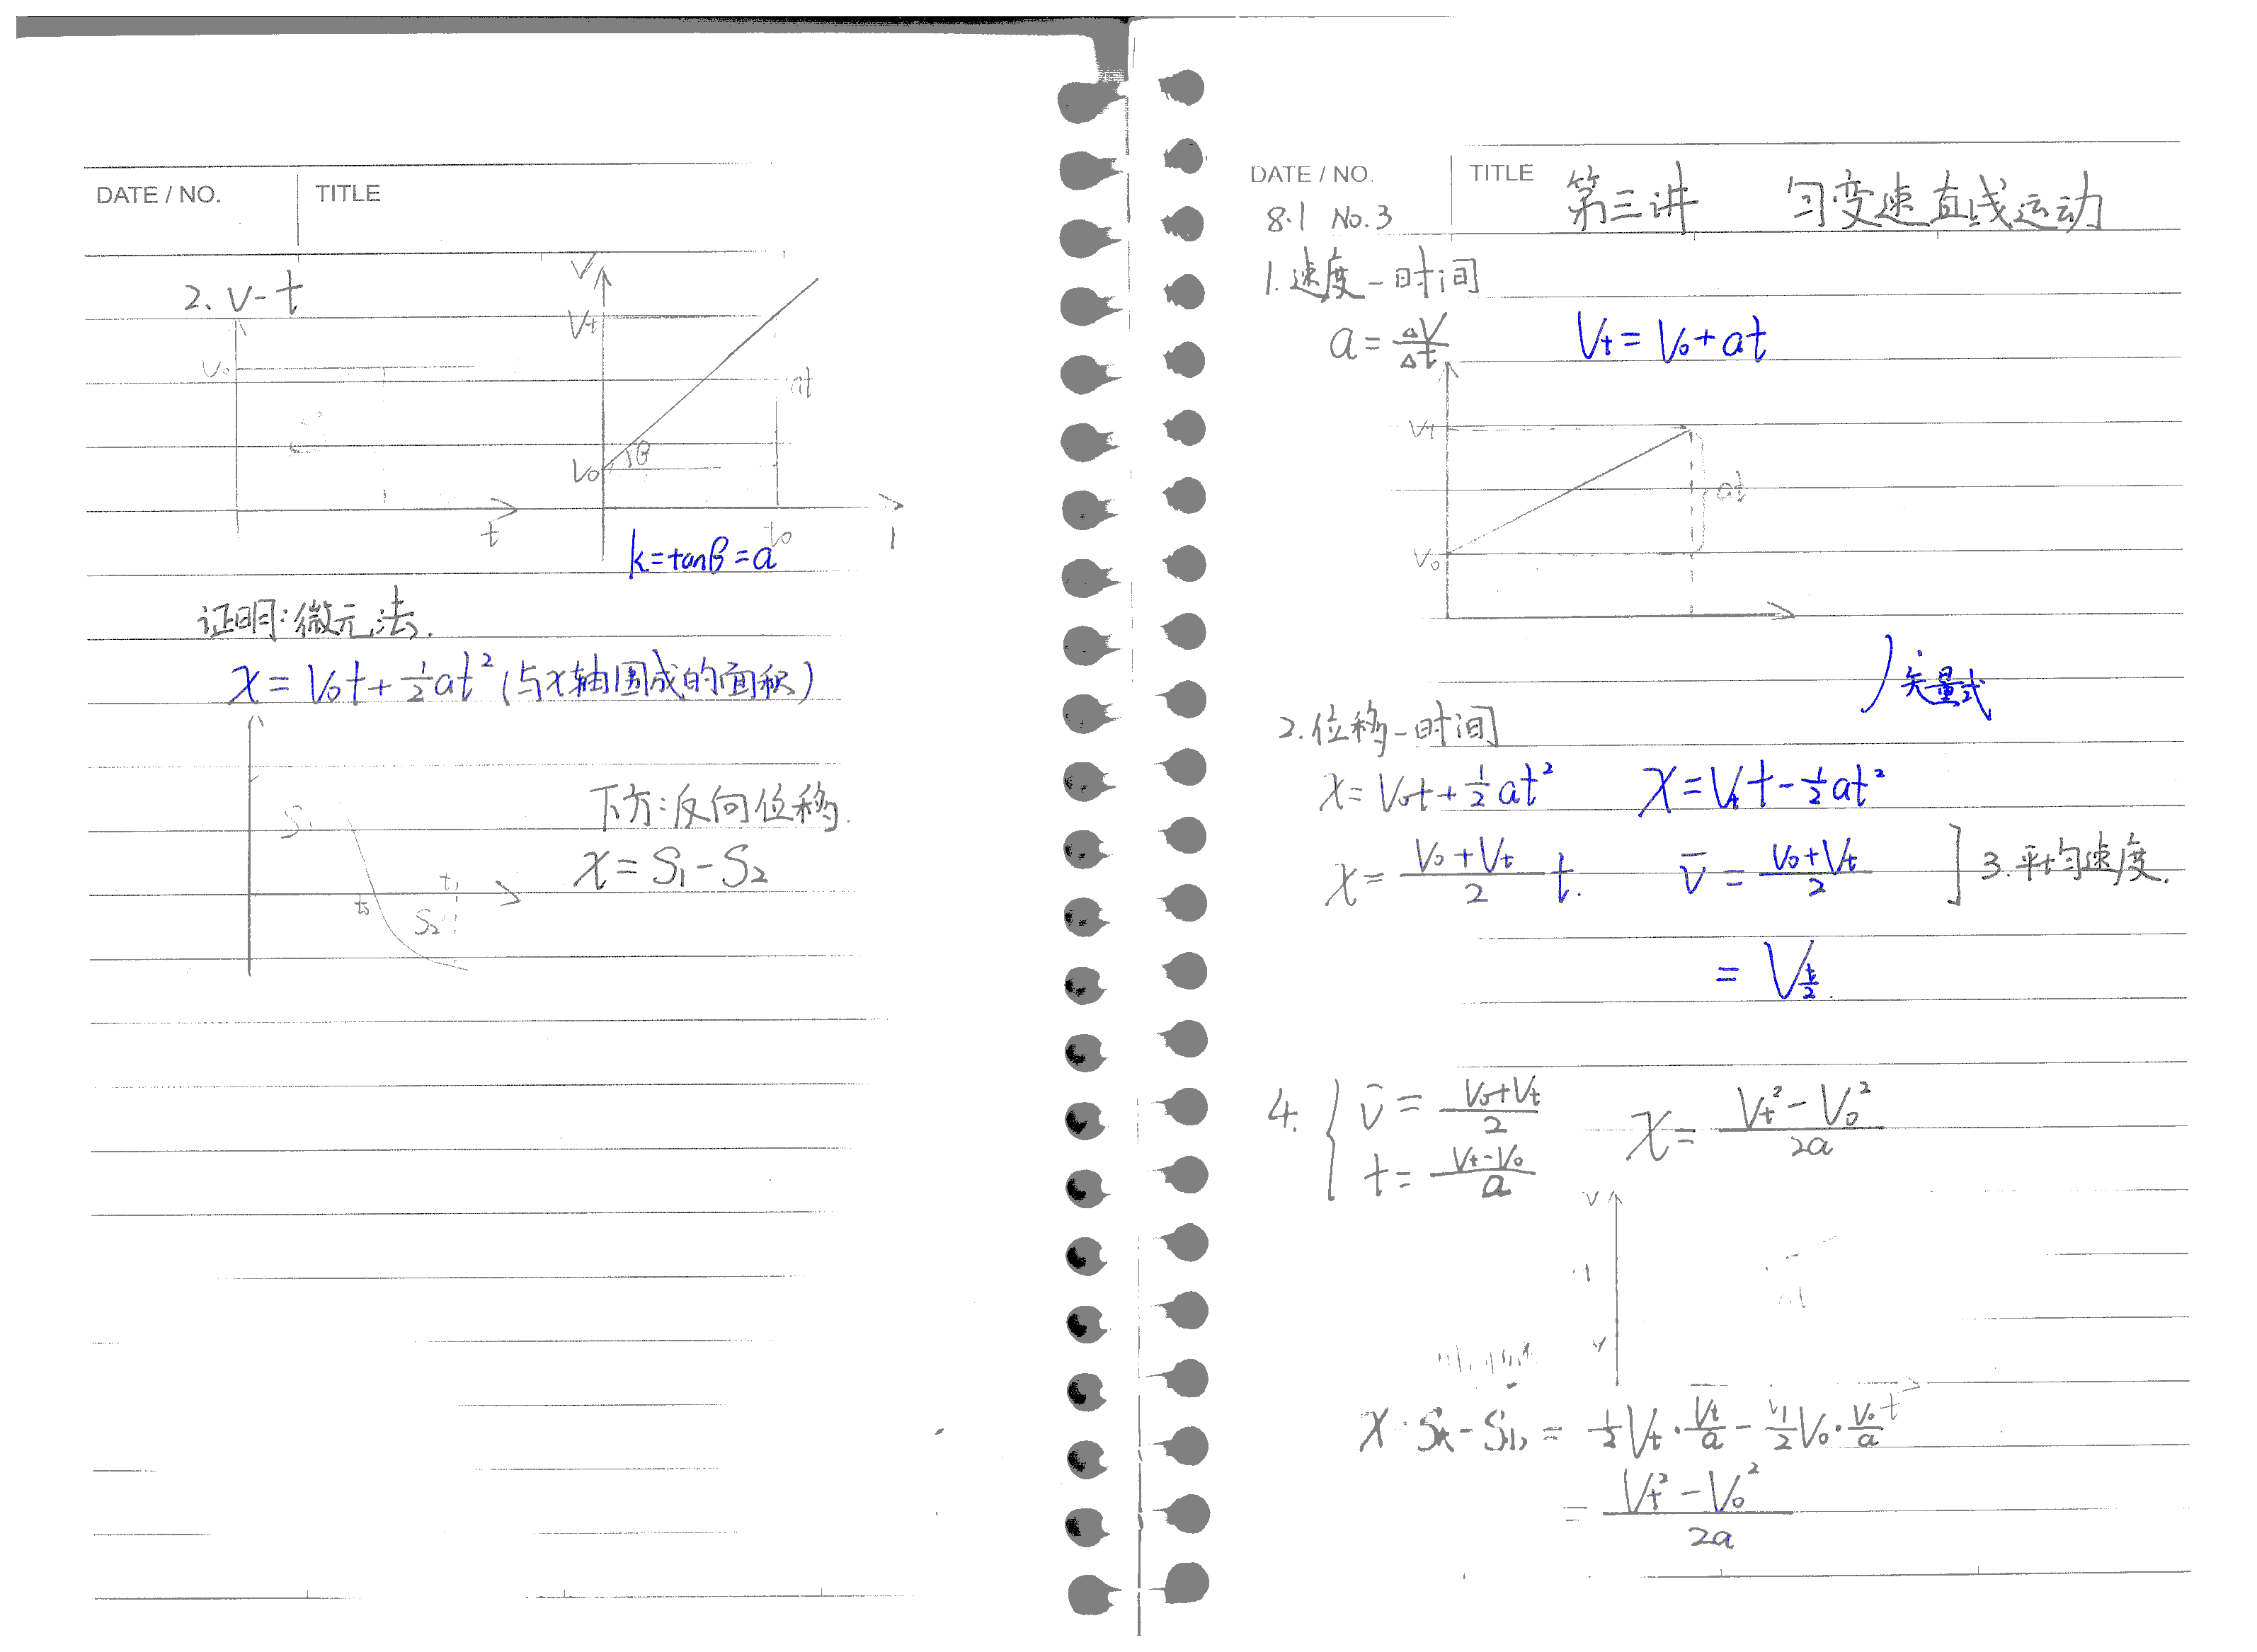 DATE / NO. TITLE
2. v-t
V
Vt
V₀
at
V₀
β
t
t₀
k=tanβ=a
证明:微元法.
x=V₀t+½at²(与x轴围成的面积)
S₁
下方:反向位移.
x=S₁-S₂
t₁
t₀
S₂
DATE / NO. TITLE 第三讲 匀变速直线运动
8.1 No.3
1.速度-时间
a=ΔV/Δt Vt=V₀+at
Vt
at
V₀
矢量式
2.位移-时间
x=V₀t+½at² x=Vtt-½at²
x=(V₀+Vt)/2 t. v̄=(V₀+Vt)/2 ] 3.平均速度.
=V_(t/2).
4. { v̄=(V₀+Vt)/2 x=(Vt²-V₀²)/2a
t=(Vt-V₀)/a
v
at
t
=½Vt·Vt/a-½V₀·V₀/a
=(Vt²-V₀²)/2a